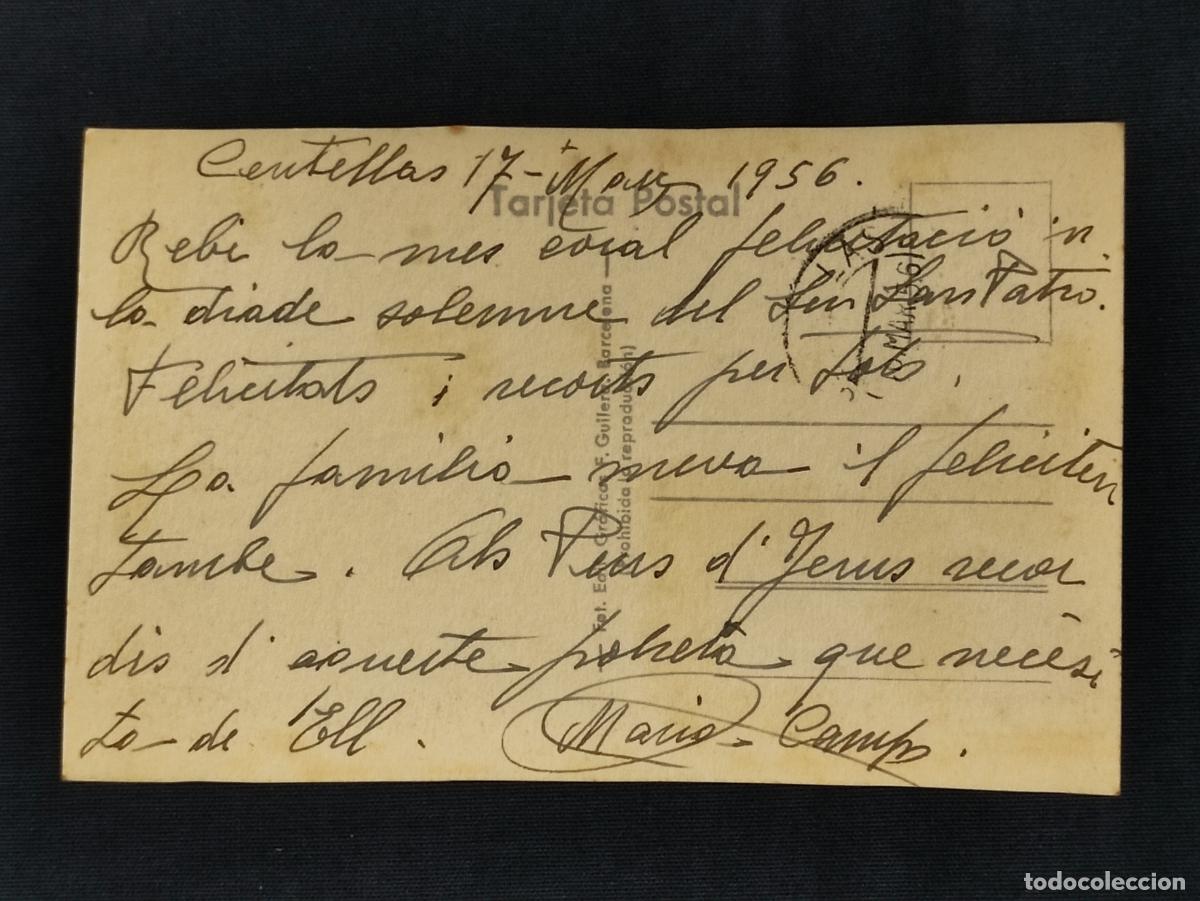 Centellas 17-Març 1956.
Tarjeta Postal
Rebi la mes coral felicitació in
la diade solemne del Seu Sant Patró.
Felicitats i recorts per tots.
La familia meva il feliciten
tambe. Als Peus d'Jesus recor
dis d'aqueste pobreta que necesi
ta de Ell.
Maria Camps.
Fot. Edit. Gráficas F. Guilera Barcelona
(Prohibida la reproducción)
MAR 56
todocoleccion